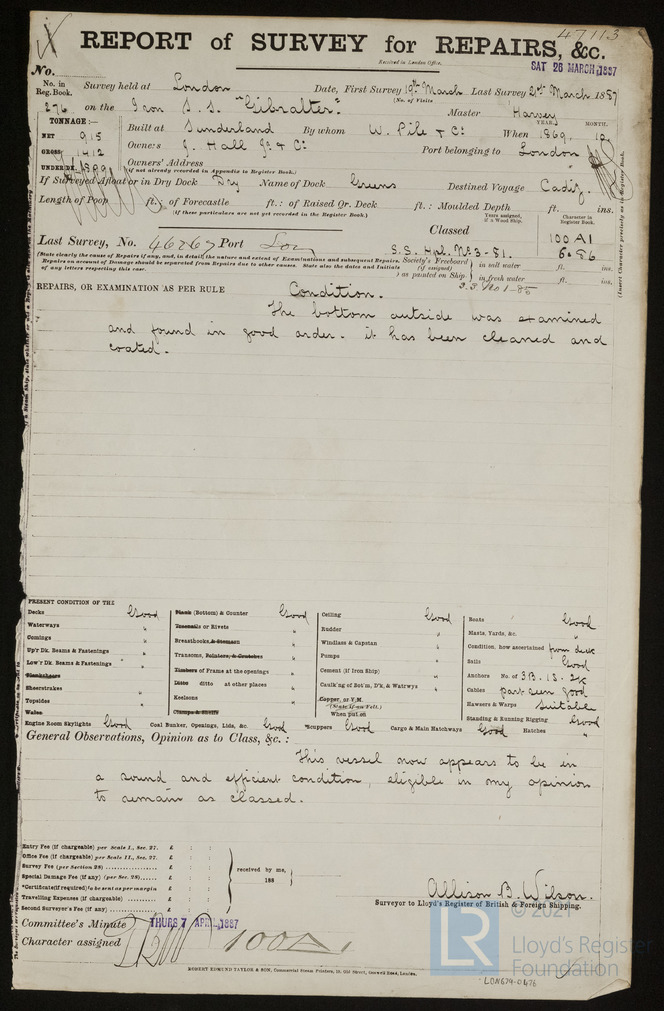 47113
REPORT of SURVEY for REPAIRS, &c.
Received in London Office.
SAT 26 MARCH 1887
No.
No. in Reg. Book. Survey held at London Date, First Survey 19th March Last Survey 21st March 1887
(No. of Visits
276 on the Iron S.S. "Gibralter". Master Harvey
TONNAGE:— YEAR. MONTH.
NET 915 Built at Sunderland By whom W. Pile & Co When 1869. 12
GROSS 1412 Owners J. Hall Jr & Co Port belonging to London
UNDER DK. Owners' Address
(if not already recorded in Appendix to Register Book.)
If Surveyed Afloat or in Dry Dock Dry Name of Dock Greens Destined Voyage Cadiz.
Length of Poop ft.: of Forecastle ft.: of Raised Qr. Deck ft.: Moulded Depth ft. ins.
(If these particulars are not yet recorded in the Register Book.)
Years assigned, if a Wood Ship. Character in Register Book.
Classed 100 A1
Last Survey, No. 46267 Port Lon S.S. Hpl. No. 3-81. 6.86
(State clearly the cause of Repairs if any, and, in detail, the nature and extent of Examinations and subsequent Repairs.
Repairs on account of Damage should be separated from Repairs due to other causes. State also the dates and Initials
of any letters respecting this case.
Society's Freeboard (if assigned) as painted on Ship in salt water ft. ins.
in fresh water ft. ins.
S.S. No 1-85
REPAIRS, OR EXAMINATION AS PER RULE Condition.
The bottom outside was examined
and found in good order. it has been cleaned and
coated.
PRESENT CONDITION OF THE
Decks Good
Waterways "
Comings "
Up'r Dk. Beams & Fastenings "
Low'r Dk. Beams & Fastenings "
Planksheers
Sheerstrakes "
Topsides "
Wales
Engine Room Skylights Good
Plank (Bottom) & Counter Good
Treenails or Rivets "
Breasthooks, & Stemson "
Transoms, Pointers, & Crutches "
Timbers of Frame at the openings "
Ditto ditto at other places "
Keelsons "
Clamps & Shelfs
Coal Bunker, Openings, Lids, &c. Good
Ceiling Good
Rudder "
Windlass & Capstan "
Pumps "
Cement (if Iron Ship) "
Caulk'ng of Bot'm, D'k, & Watrwys "
Copper, or Y.M.
(State if on Felt.)
When put on
Scuppers Good Cargo & Main Hatchways Good
Boats Good
Masts, Yards, &c. "
Condition, how ascertained from deck
Sails Good
Anchors No. of 3B. 1S. 2K
Cables part seen good
Hawsers & Warps Suitable
Standing & Running Rigging Good
Hatches "
General Observations, Opinion as to Class, &c.:
This vessel now appears to be in
a sound and efficient condition, eligible in my opinion
to remain as classed.
Entry Fee (if chargeable) per Scale I., Sec. 27. £ : :
Office Fee (if chargeable) per Scale II., Sec. 27. £ : :
Survey Fee (per Section 28) £ : :
Special Damage Fee (if any) (per Sec. 28) £ : :
*Certificate (if required) to be sent as per margin
Travelling Expenses (if chargeable) £ : :
Second Surveyor's Fee (if any) £ : :
received by me,
188
Allison B. Wilson.
Surveyor to Lloyd's Register of British & Foreign Shipping.
Committee's Minute THURS 7 APRIL 1887
Character assigned 100A1
ROBERT EDMUND TAYLOR & SON, Commercial Steam Printers, 19, Old Street, Goswell Road, London.
LR
© 2021
Lloyd's Register
Foundation
LON679-0476